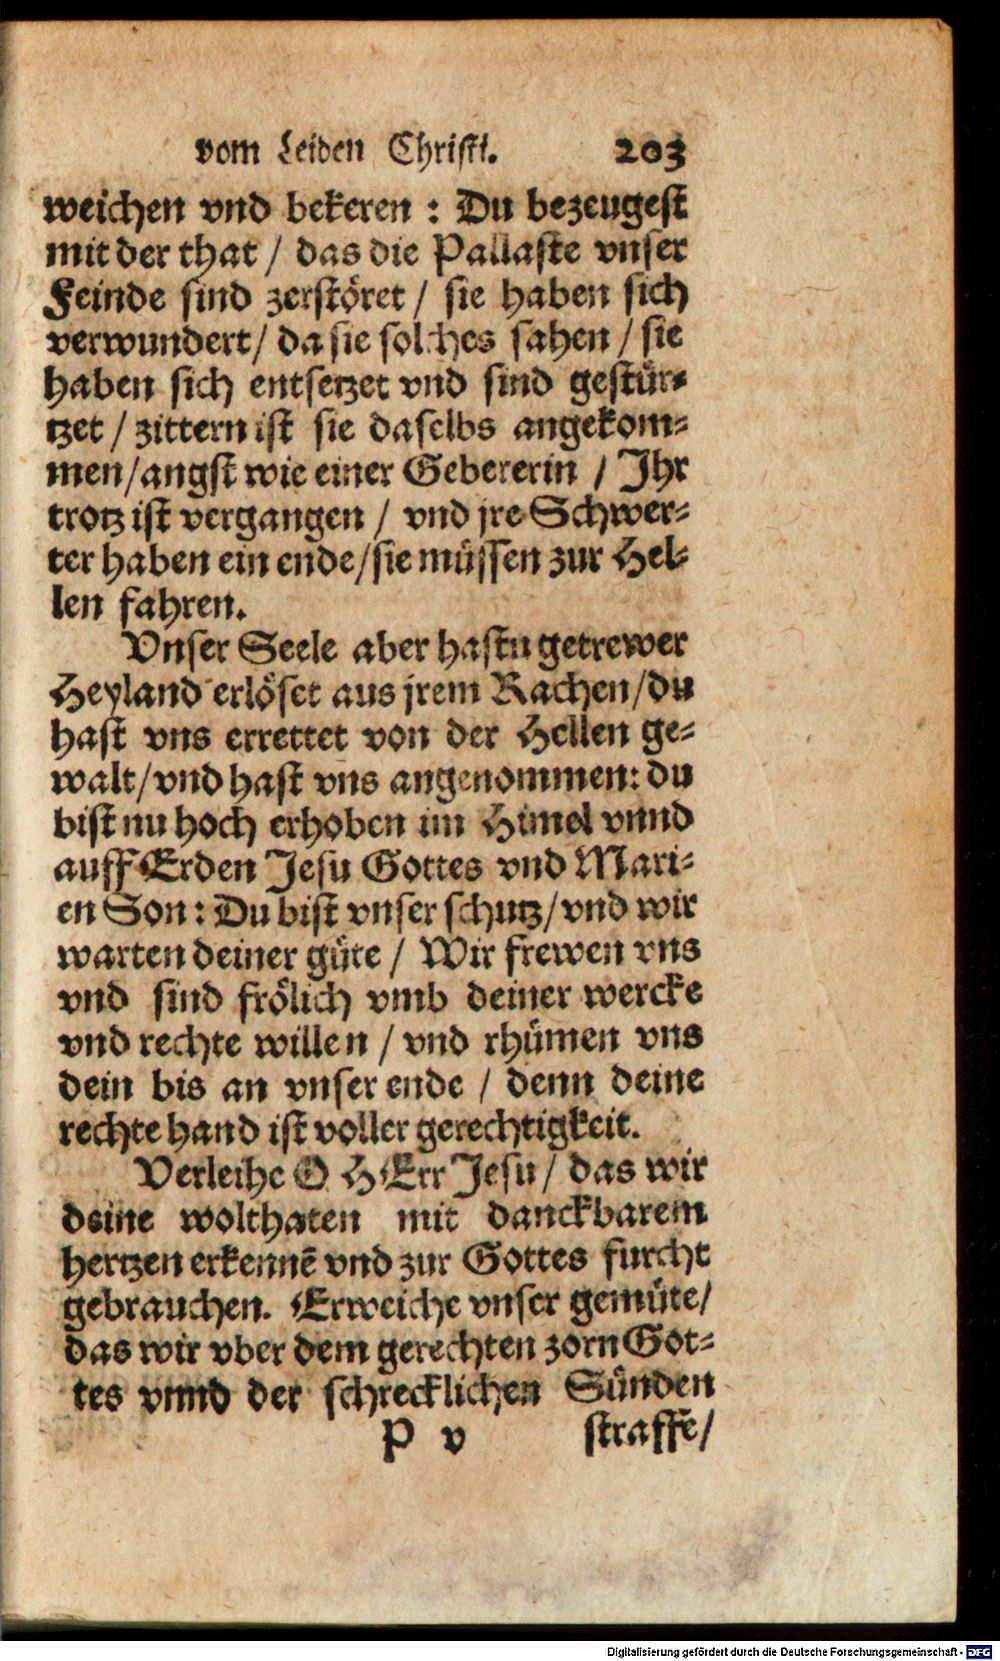 vom Leiden Christi. 203
weichen vnd bekeren : Du bezeugest
mit der that / das die Pallaste vnser
Feinde sind zerstöret / sie haben sich
verwundert / da sie solches sahen / sie
haben sich entsetzet vnd sind gestür-
tzet / zittern ist sie daselbs angekom-
men / angst wie einer Gebererin / Ihr
trotz ist vergangen / vnd jre Schwer-
ter haben ein ende / sie müssen zur Hel-
len fahren.
Vnser Seele aber hastu getrewer
Heyland erlöset aus jrem Rachen / du
hast vns errettet von der Hellen ge-
walt / vnd hast vns angenommen: du
bist nu hoch erhoben im Himel vnnd
auff Erden Jesu Gottes vnd Mari-
en Son : Du bist vnser schutz / vnd wir
warten deiner güte / Wir frewen vns
vnd sind frölich vmb deiner wercke
vnd rechte willen / vnd rhümen vns
dein bis an vnser ende / denn deine
rechte hand ist voller gerechtigkeit.
Verleihe O HErr Jesu / das wir
deine wolthaten mit danckbarem
hertzen erkennē vnd zur Gottes furcht
gebrauchen. Erweiche vnser gemüte /
das wir vber dem gerechten zorn Got-
tes vnnd der schrecklichen Sünden
P v straffe /
Digitalisierung gefördert durch die Deutsche Forschungsgemeinschaft - DFG